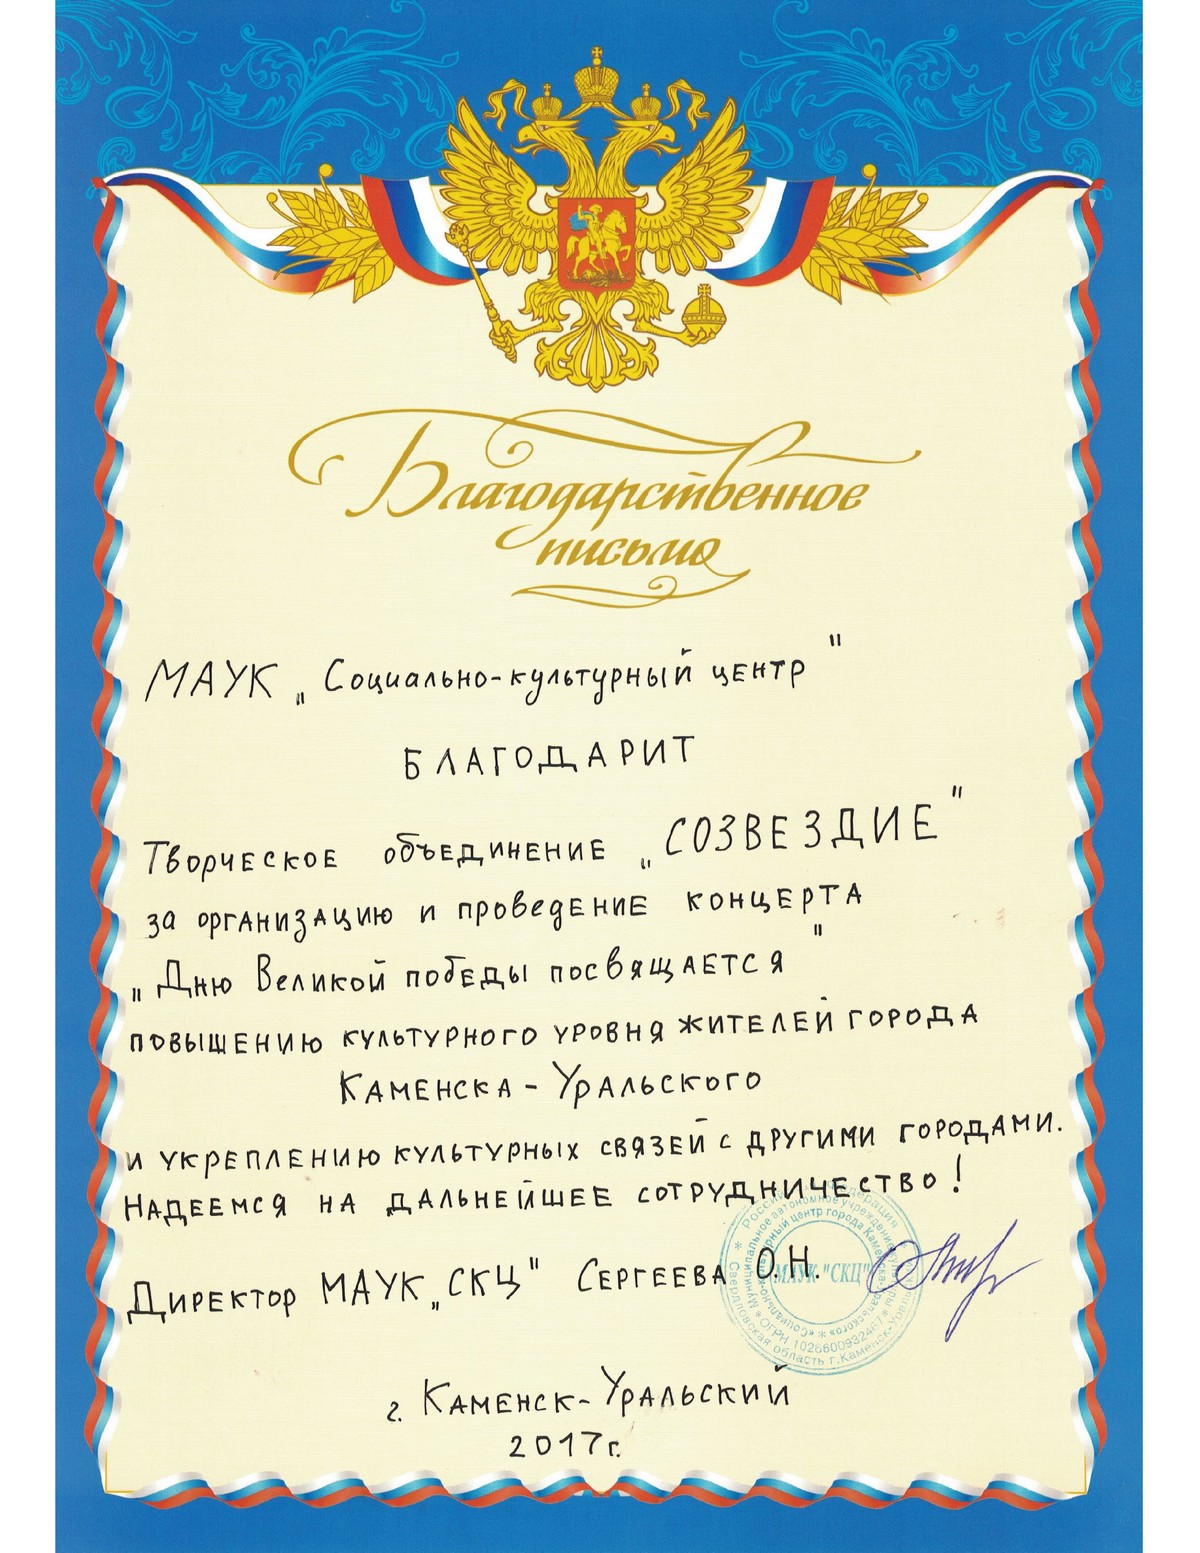 Благодарственное
письмо
МАУК „Социально-культурный центр"
БЛАГОДАРИТ
Творческое объединение „СОЗВЕЗДИЕ"
за организацию и проведение концерта
„Дню Великой победы посвящается"
повышению культурного уровня жителей города
Каменска-Уральского
и укреплению культурных связей с другими городами.
Надеемся на дальнейшее сотрудничество!
Директор МАУК „СКЦ" Сергеева О.Н.
МАУК "СКЦ"
Российская Федерация
Свердловская область г.Каменск-Уральский
Муниципальное автономное учреждение культуры
ОГРН 1026600932467
«Социально-культурный центр города Каменска-Уральского»
г. Каменск-Уральский
2017г.